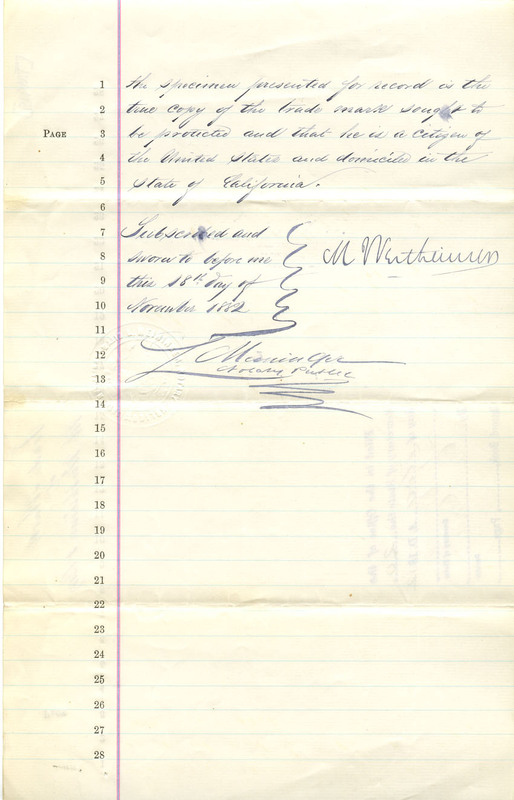 1 the specimen presented for record is the
2 true copy of the trade mark sought to
PAGE 3 be protected and that he is a citizen of
4 the United States and domiciled in the
5 State of California.
6
7 Subscribed and
8 sworn to before me M Wertheimer
9 this 18th day of
10 November 1882
11
12
13 Notary Public
14
15
16
17
18
19
20
21
22
23
24
25
26
27
28